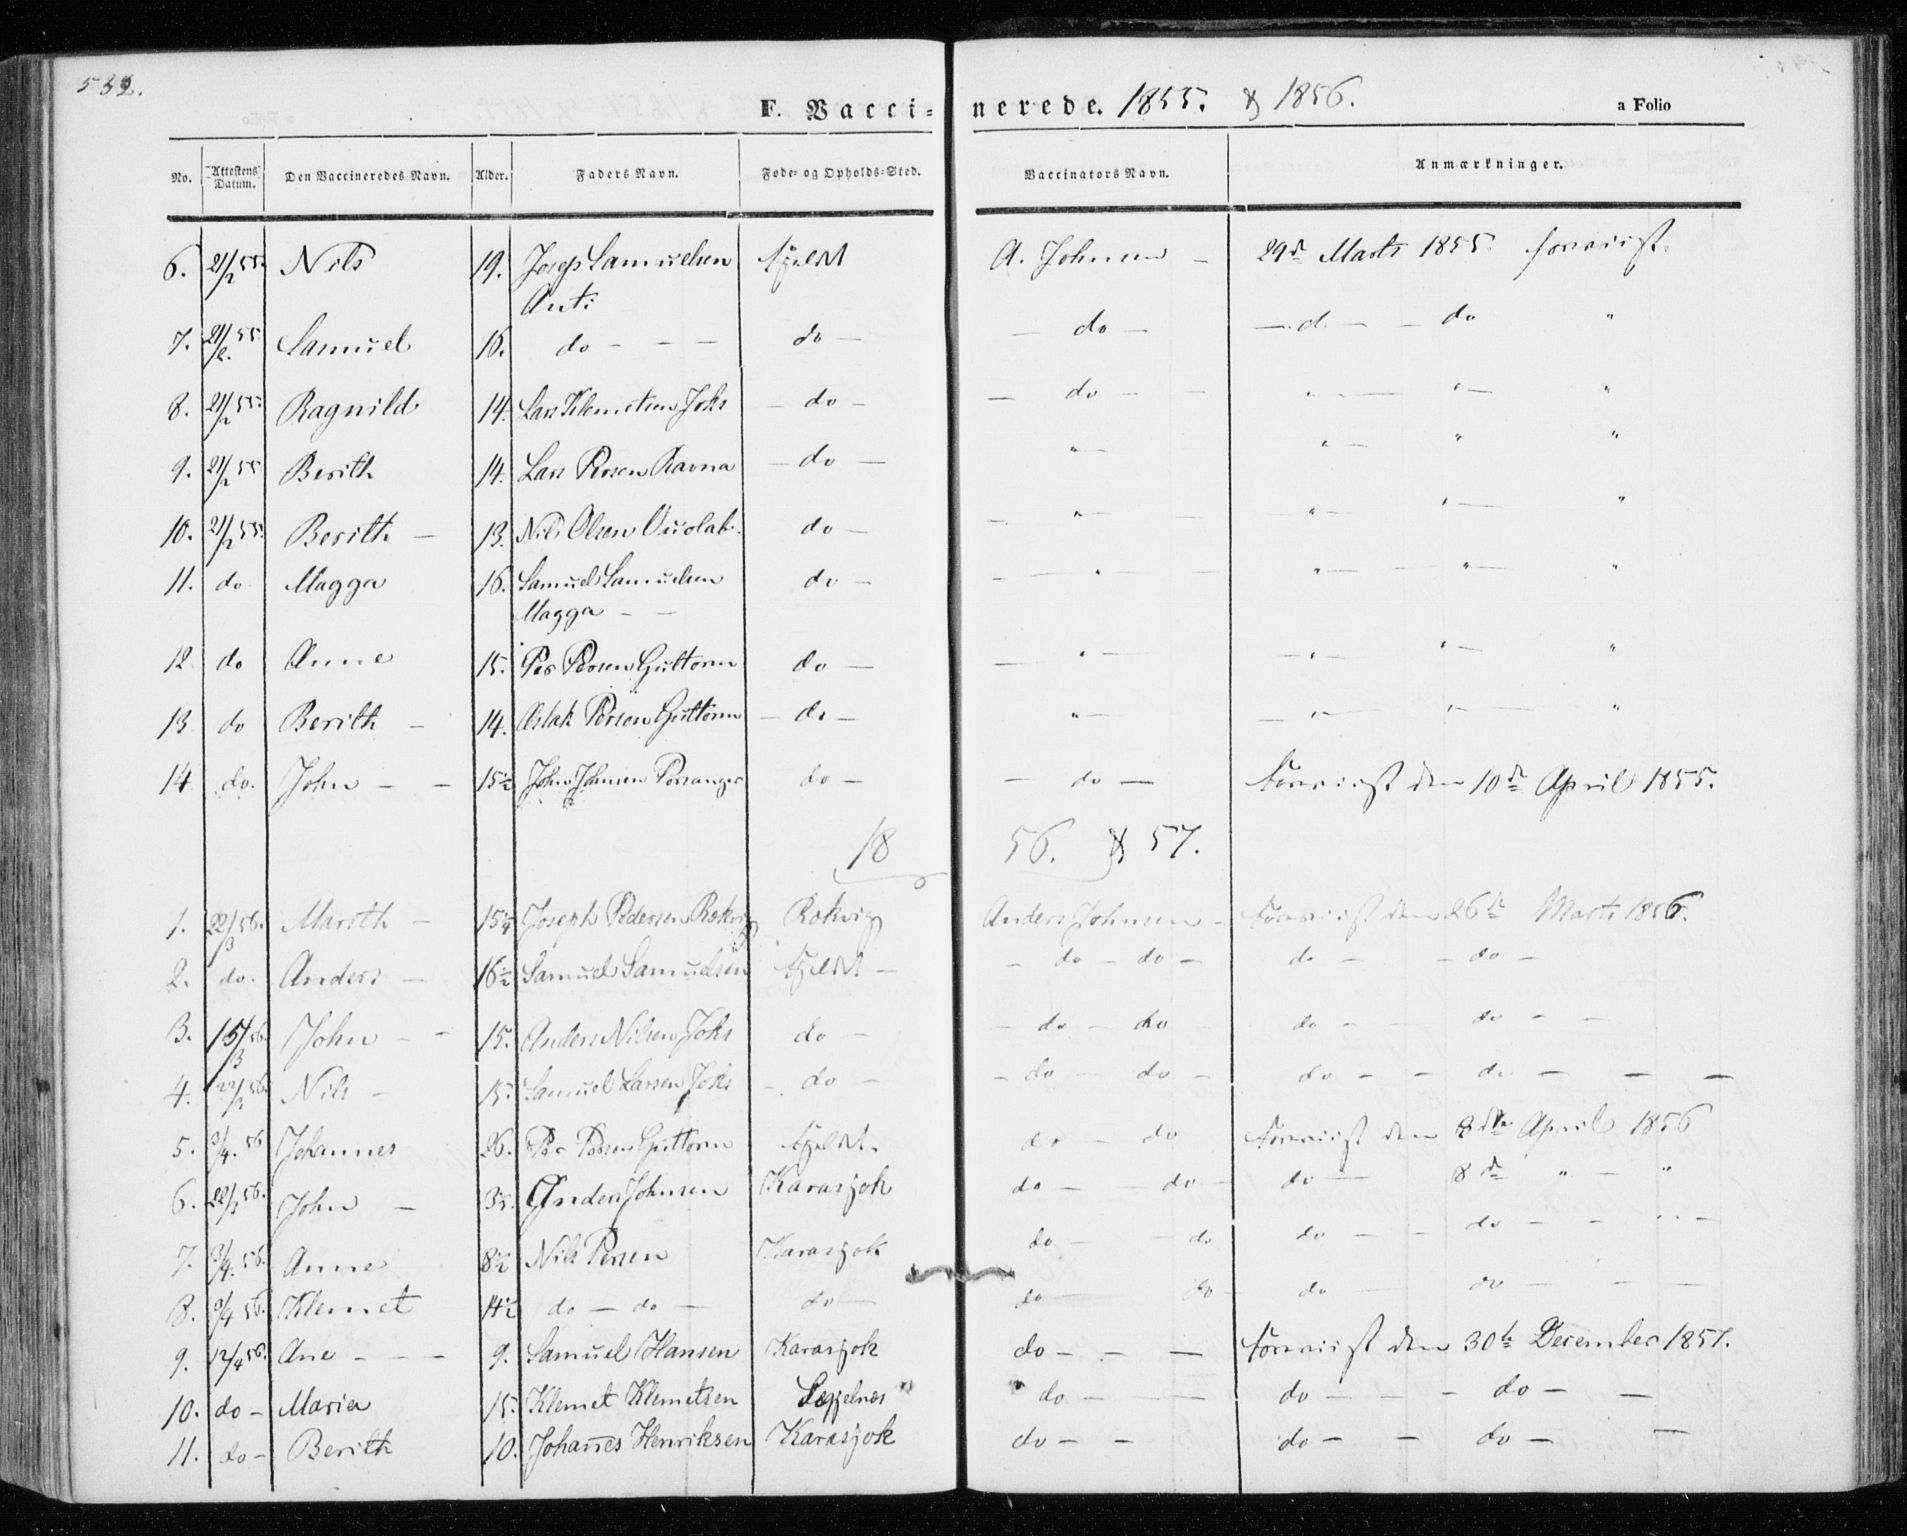 532.
F. Vaccinerede. 1855. & 1856. a Folio
No. Attestens Datum. Den Vaccineredes Navn. Alder. Faders Navn. Føde- og Opholds-Sted. Vaccinators Navn. Anmærkninger.
6. 21/2 55. Nils 19. Josep Samuelsen Fjeldt A. Johnsen - 29d Marts 1855. foreviist.
Anti
7. 21/2 55. Samuel 16. do - - - do - - do - - d. - - do "
8. 21/2 55. Ragnild 14. Lars Klemetsen Joks - do - - do - - " - " - "
9. 21/2 55 Berith 14. Lars Persen Ravna - do - " - " - " "
10. 21/2 55. Berith - 13. Nils Olsen Ouolab. do - - " - - " - " - "
11. do Magga 16. Samuel Samuelsen do - - " - - " - " - "
Magga - -
12 do Anne 15. Per Persen Guttorm do - - " - - " - " - "
13 do Berith - 14. Aslak Persen Guttorm - do - " - - " - " - "
14 do. John - - 15½ John Johnsen Porsanger do - - do - Foreviist den 10d April 1855.
1856. & 57.
1. 22/3 56. Marith - 15¼ Joseph Pedersen Rokvig Rokvig Anders Johnsen - Foreviist den 26d Marts 1856.
2. do. Anders - 16½ Samuel Samuelsen Fjeldt - - do - do - do - - do -
3. 15/3 56. John - - 15. Anders Nilsen Joks do - - do - do do - - do - -
4. 22/3 56. Nils - 15. Samuel Larsen Joks - do - - do - do - do - - do - - -
5. 3/4. 56 Johannes 26. Per Persen Guttorm Fjeldt. do - do Foreviist den 8de April 1856
6. 22/3 56. John - Anders Johnsen Karasjok do - - do - do - 8d " - "
7. 3/4. 56. Anne 8½ Nils Persen Karasjok do - - do do - - do - - -
8. 3/4 56. Klemet 14½ do - do - do - do - do do - do - - -
9. 12/4 56. Ane - - - 9. Samuel Hansen Karasjok do - - - Foreviist den 30te December 1857.
10. do - Maria 15. Klemet Klemetsen do - - - do - - - do - -
11. do - Berith 10. Johañes Henriksen Karasjok do - - do - - do - -